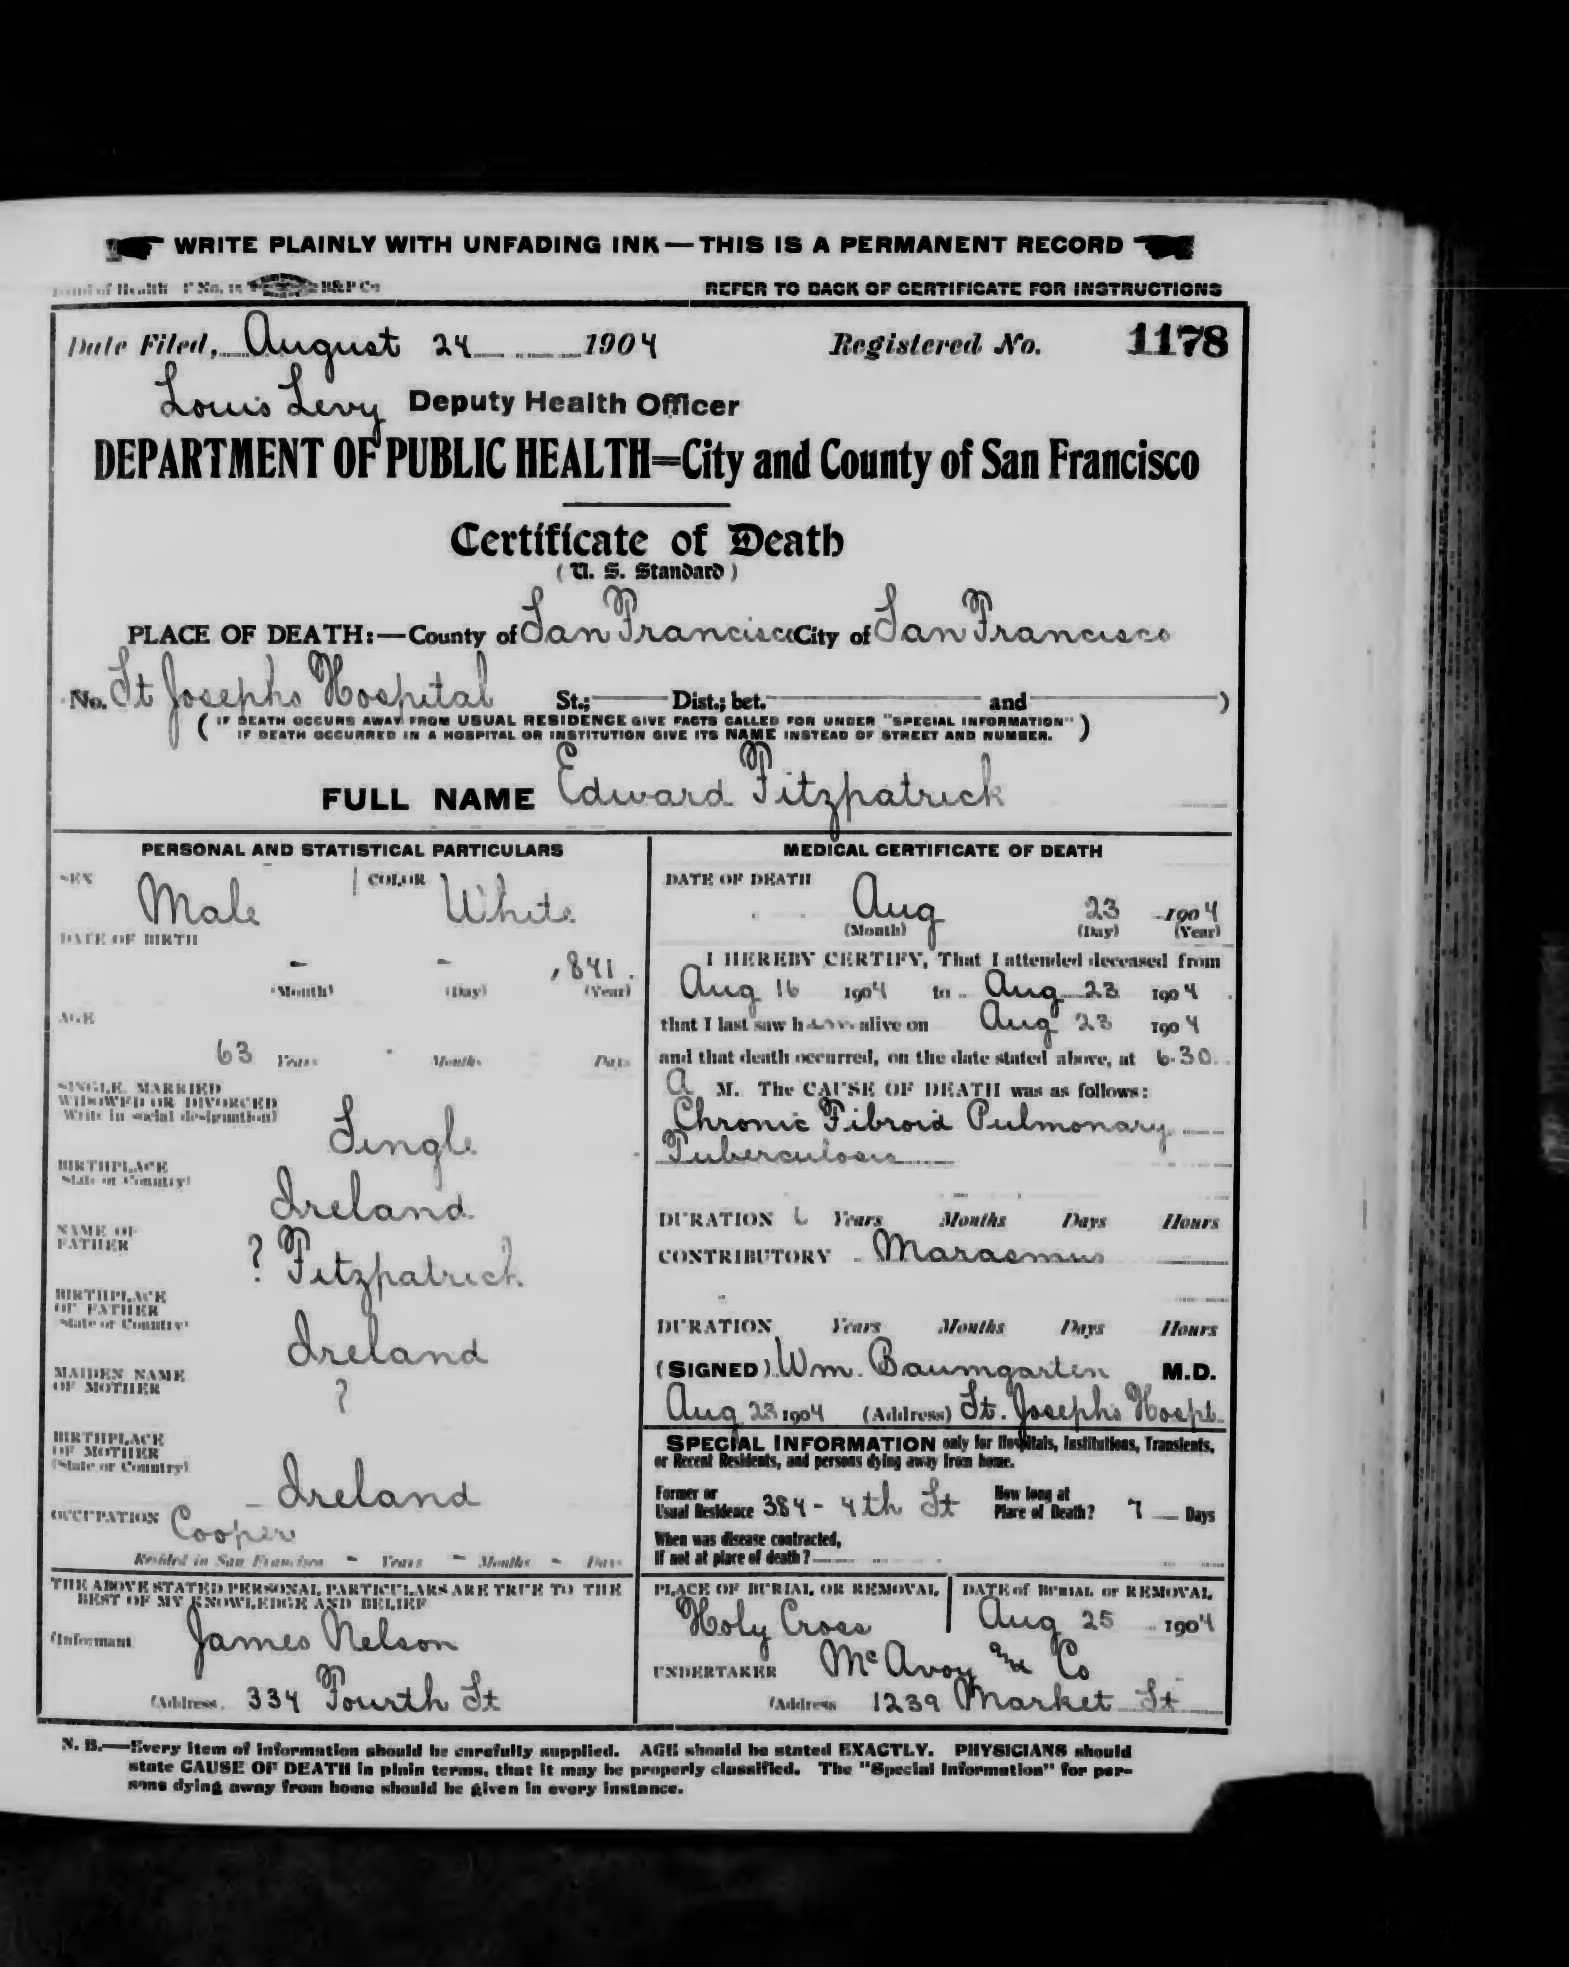 WRITE PLAINLY WITH UNFADING INK—THIS IS A PERMANENT RECORD
Board of Health F No. 11 H&P Co
REFER TO BACK OF CERTIFICATE FOR INSTRUCTIONS
Date Filed, August 24 1904 Registered No. 1178
Louis Levy Deputy Health Officer
DEPARTMENT OF PUBLIC HEALTH=City and County of San Francisco
Certificate of Death
(U. S. Standard)
PLACE OF DEATH:—County of San Francisco City of San Francisco
No. St Josephs Hospital St.; Dist.; bet. and )
( IF DEATH OCCURS AWAY FROM USUAL RESIDENCE GIVE FACTS CALLED FOR UNDER "SPECIAL INFORMATION" )
IF DEATH OCCURRED IN A HOSPITAL OR INSTITUTION GIVE ITS NAME INSTEAD OF STREET AND NUMBER.
FULL NAME Edward Fitzpatrick
PERSONAL AND STATISTICAL PARTICULARS
SEX Male COLOR White
DATE OF BIRTH
- - 1841.
(Month) (Day) (Year)
AGE
63 Years Months Days
SINGLE, MARRIED
WIDOWED OR DIVORCED
(Write in social designation)
Single
BIRTHPLACE
(State or Country)
Ireland
NAME OF
FATHER
? Fitzpatrick
BIRTHPLACE
OF FATHER
(State or Country)
Ireland
MAIDEN NAME
OF MOTHER
?
BIRTHPLACE
OF MOTHER
(State or Country)
Ireland
OCCUPATION Cooper
Resided in San Francisco - Years - Months - Days
THE ABOVE STATED PERSONAL PARTICULARS ARE TRUE TO THE
BEST OF MY KNOWLEDGE AND BELIEF
(Informant James Nelson
(Address. 334 Fourth St
MEDICAL CERTIFICATE OF DEATH
DATE OF DEATH
Aug 23 1904
(Month) (Day) (Year)
I HEREBY CERTIFY, That I attended deceased from
Aug 16 1904 to Aug 23 1904
that I last saw him alive on Aug 23 1904
and that death occurred, on the date stated above, at 6-30
A M. The CAUSE OF DEATH was as follows:
Chronic Fibroid Pulmonary
Tuberculosis
DURATION 6 Years Months Days Hours
CONTRIBUTORY Marasmus
DURATION Years Months Days Hours
(SIGNED) Wm. Baumgarten M.D.
Aug 23 1904 (Address) St. Josephs Hospt.
SPECIAL INFORMATION only for Hospitals, Institutions, Transients,
or Recent Residents, and persons dying away from home.
Former or
Usual Residence 384 - 4th St
How long at
Place of Death? 7 Days
When was disease contracted,
If not at place of death?
PLACE OF BURIAL OR REMOVAL
Holy Cross
DATE of BURIAL or REMOVAL
Aug 25 1904
UNDERTAKER McAvoy and Co
(Address 1239 Market St
N. B.—Every item of information should be carefully supplied. AGE should be stated EXACTLY. PHYSICIANS should
state CAUSE OF DEATH in plain terms, that it may be properly classified. The "Special Information" for per-
sons dying away from home should be given in every instance.